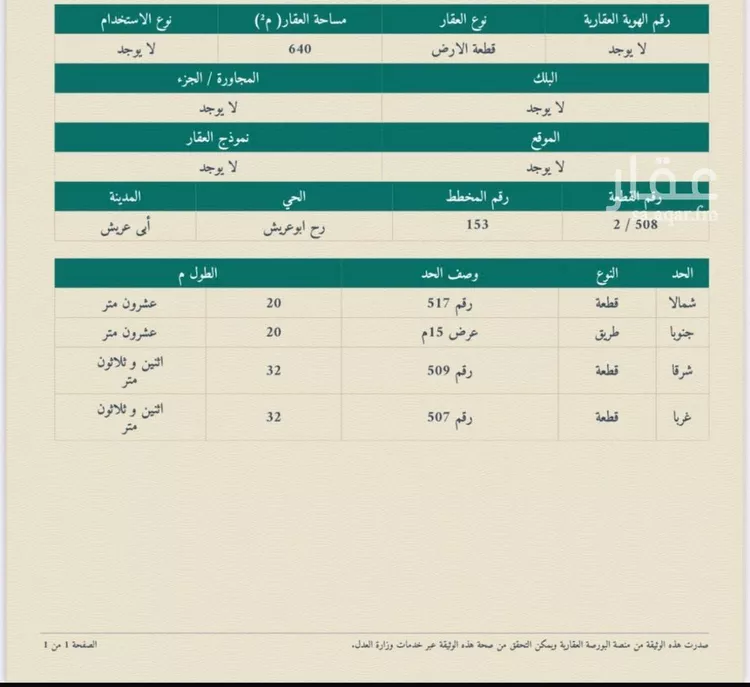 رقم الهوية العقارية نوع العقار مساحة العقار( م²) نوع الاستخدام
لا يوجد قطعة الارض 640 لا يوجد
البلك المجاورة / الجزء
لا يوجد لا يوجد
الموقع نموذج العقار
لا يوجد لا يوجد
عقار
sa.aqar.fm
رقم القطعة رقم المخطط الحي المدينة
508 / 2 153 رح ابوعريش أبى عريش
الحد النوع وصف الحد الطول م
شمالا قطعة رقم 517 20 عشرون متر
جنوبا طريق عرض 15م 20 عشرون متر
شرقا قطعة رقم 509 32 اثنين و ثلاثون
متر
غربا قطعة رقم 507 32 اثنين و ثلاثون
متر
صدرت هذه الوثيقة من منصة البورصة العقارية ويمكن التحقق من صحة هذه الوثيقة عبر خدمات وزارة العدل. الصفحة 1 من 1